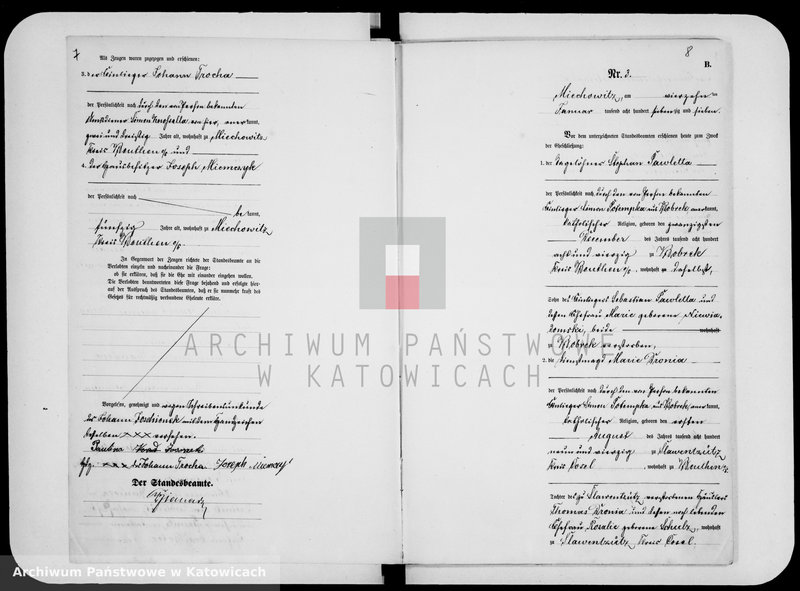 7
Als Zeugen waren zugezogen und erschienen:
3. der Einlieger Johann Trocha
der Persönlichkeit nach durch den von Person bekannten
Simon von hier, aner kannt,
zwei und dreißig Jahre alt, wohnhaft zu Miechowitz
Kreis Beuthen o/s und
4. der Hausbesitzer Joseph Niemczyk
der Persönlichkeit nach
be kannt,
fünfzig Jahre alt, wohnhaft zu Miechowitz
Kreis Beuthen o/s.
In Gegenwart der Zeugen richtete der Standesbeamte an die
Verlobten einzeln und nacheinander die Frage:
ob sie erklären, daß sie die Ehe mit einander eingehen wollen.
Die Verlobten beantworteten diese Frage bejahend und erfolgte hier-
auf der Ausspruch des Standesbeamten, daß er sie nunmehr kraft des
Gesetzes für rechtmäßig verbundene Eheleute erkläre.
Vorgelesen, genehmigt und wegen Schreibensunkunde
des Johann mit dem Handzeichen
desselben xxx versehen.
Paulina
Hdz. xxx des Johann Trocha. Joseph
Der Standesbeamte.
8
B.
Nr. 3.
Miechowitz, am vierzehn ten
Januar tausend acht hundert siebenzig und sieben.
Vor dem unterzeichneten Standesbeamten erschienen heute zum Zweck
der Eheschließung:
1. der Tagelöhner Stephan Pawlella
der Persönlichkeit nach durch den von Person bekannten
Einlieger Simon Potempka aus Bobrek aner kannt,
katholischer Religion, geboren den zwanzigsten
Dezember des Jahres tausend acht hundert
acht und vierzig zu Bobrek
Kreis Beuthen o/s, wohnhaft zu daselbst,
Sohn des Einliegers Sebastian Pawlella und
dessen Ehefrau Marie geborene Niewia-
domski, beide wohnhaft
zu Bobrek verstorben,
2. die Dienstmagd Marie Kronia
der Persönlichkeit nach durch den von Person bekannten
Einlieger Simon Potempka aus Bobrek aner kannt,
katholischer Religion, geboren den ersten
August des Jahres tausend acht hundert
neun und vierzig zu Slawentzütz
Kreis Cosel, wohnhaft zu Beuthen o/s
Tochter des zu Slawentzütz verstorbenen Häuslers
Thomas Kronia und dessen noch lebenden
Ehefrau Rosalie geborene Schulz, wohnhaft
zu Slawentzütz Kreis Cosel.
ARCHIWUM PAŃSTWOWE
W KATOWICACH
Archiwum Państwowe w Katowicach